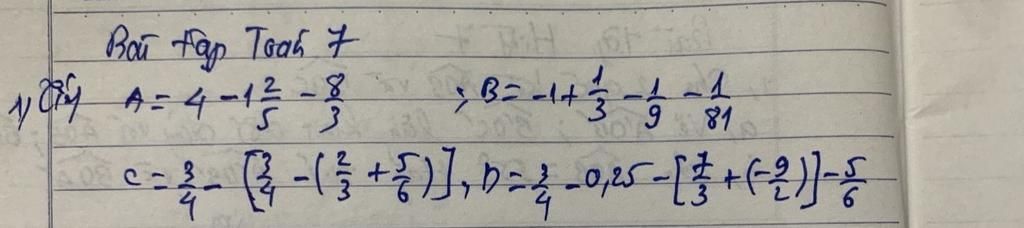 Bài tập Toán 7
1, Tính A = 4 - 1 2/5 - 8/3 ; B = -1 + 1/3 - 1/9 - 1/81
C = 3/4 - [3/4 - (2/3 + 5/6)], D = 3/4 - 0,25 - [7/3 + (-9/2)] - 5/6